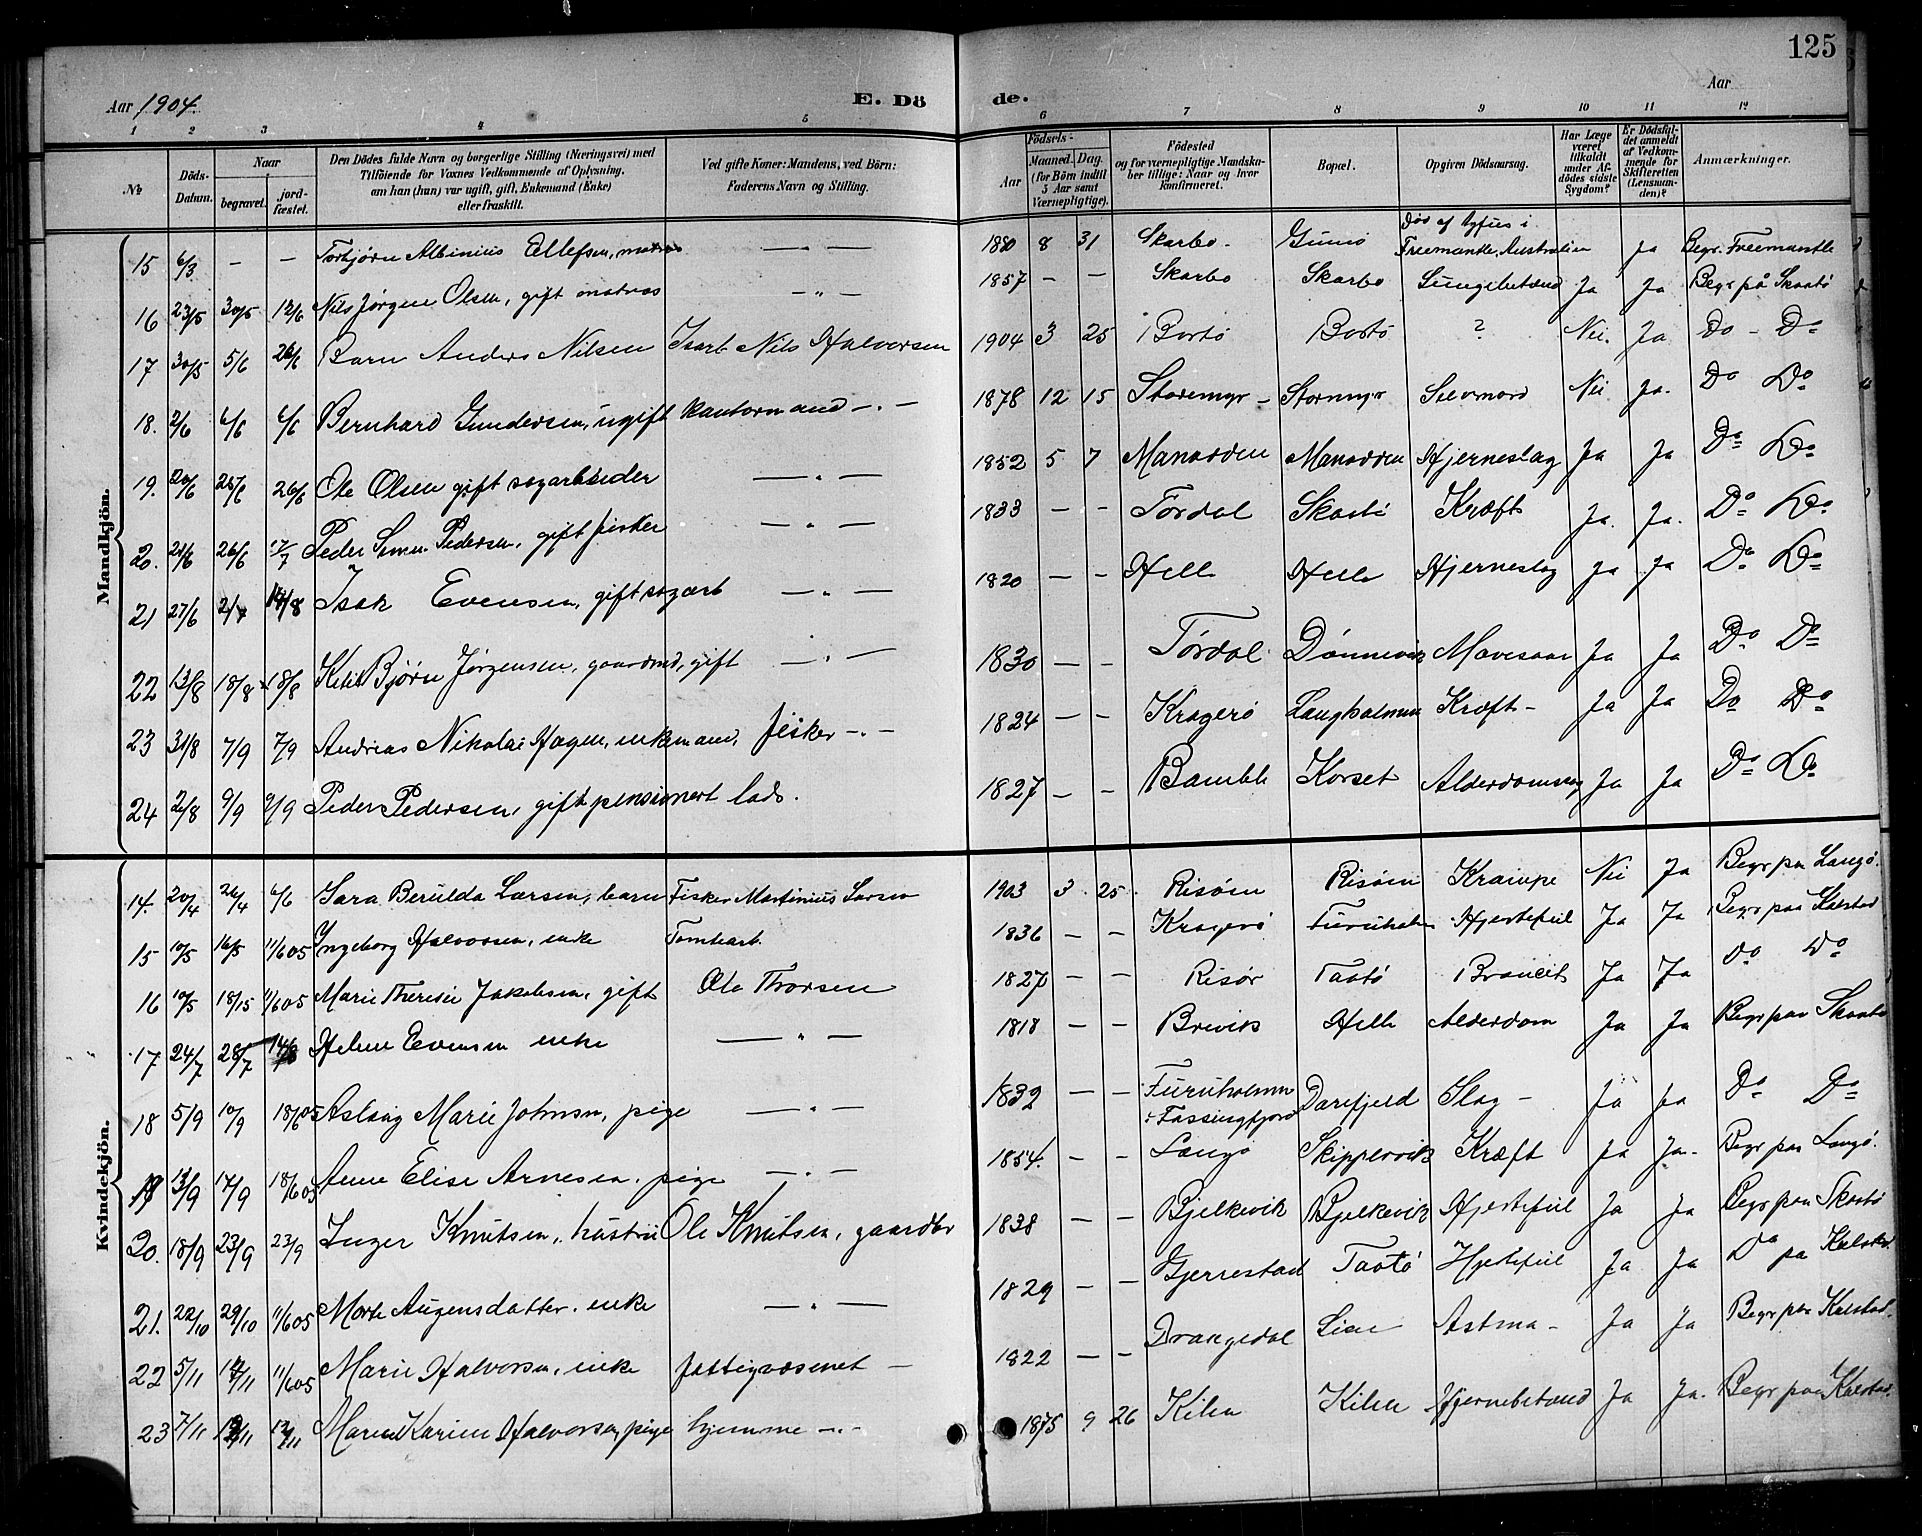 125
Aar 1904. E. Dö de. Aar
1 2 3 4 5 6 7 8 9 10 11 12
№ Döds-Datum. Naar begravet. jord-fæstet. Den Dödes fulde Navn og borgerlige Stilling (Næringsvei) med Tilföiende for Voxnes Vedkommende af Oplysning, om han (hun) var ugift, gift, Enkemand (Enke) eller fraskilt. Ved gifte Koner: Mandens, ved Börn: Faderens Navn og Stilling. Födsels- Aar Maaned. Dag. (for Börn indtil 5 Aar samt Værnepligtige). Födested og for værnepligtige Mandskaber tillige: Naar og hvor konfirmeret. Bopæl. Opgiven Dödsaarsag. Har Læge været tilkaldt under Afdödes sidste Sygdom? Er Dödsfaldet anmeldt af Vedkommende for Skifteretten (Lensmanden)? Anmærkninger.
Mandkjön.
15 6/3 – – Torbjørn Albinius Ellefsen, matros — " — 1880 8 31 Skarbo Gumö Död af Tyfus i Freemantle, Australien Ja Begr. Freemantle
16 23/5 30/5 12/6 Nils Jørgen Olsen, gift matros — " — 1857 – – Skarbo Skarbo Lungebetænd Ja Ja Begr på Skaatö
17 30/5 5/6 26/6 Barn Anders Nilsen Isarb Nils Halvorsen 1904 3 25 Bortö Bortö ? Nei. Ja Do – Do
18. 2/6 6/6 6/6 Bernhard Gundersen, ugift kantormand – . – 1878 12 15 Storemyr – Stormyr Selvmord Nei Ja. Do Do
19. 20/6 25/6 26/6 Ole Olsen gift sagarbeider — " — 1852 5 7 Manodden Manodden Hjerneslag Ja Ja Do Do
20. 21/6 26/6 17/7 Peder Simen Pedersen, gift fisker — " — 1833 – – Tördal Skaatö Kræft Ja. Ja. Do Do
21 27/6 2/7 14/8 Isak Evensen, gift sagarb — " — 1820 – – Helle Helle Hjerneslag Ja Ja Do Do
22 13/8 18/8 18/8 Ketil Bjørn Jørgensen, gaardmd, gift — " — 1830 – – Tørdal Dønnevik Mavesaar Ja Ja Do Do
23 31/8 7/9 7/9 Andreas Nikolai Hagen, enkemand, fisker – . – 1824 – – Kragerö Langholmen Kræft – Ja Ja Do Do
24 2/8 9/9 9/9 Peder Pedersen, gift pensionert lods. 1827 – – Bamble Korset Alderdomssvag Ja Ja Do Do
Kvindekjön.
14. 20/4 26/4 6/6 Sara Berulda Larsen, barn Fisker Martinius Larsen 1903 3 25 Risöen Risöen Krampe Nei Ja Begr paa Langö.
15 10/5 16/5 11/6 05 Ingeborg Halvorsen, enke Tomtearb. 1836 – – Kragerö Furuholm Hjertefeil Ja Ja Begr paa Kalstad
16 10/5 18/15 11/6 05 Marie Therese Jakobsen, gift Ole Thorsen 1827 – – Risør Taatö Broncit Ja Ja Do Do
17 24/7 28/7 14/8 Helene Evensen enke — " — 1818 – – Brevik Helle Alderdom Ja Ja Begr paa Skaatö
18 5/9 10/9 18/6 05 Aslaug Marie Johnsen, pige — " — 1832 – – Furuholmen i Fossingfjord Darefjeld Slag – Ja Ja Do Do
19 13/9 17/9 18/6 05 Anne Elise Arnesen. pige — " — 1854. – – Langö Skippervik Kræft Ja Ja. Begr paa Langö.
20. 18/9 23/9 23/9 Inger Knutsen, hustru Ole Knutsen, gaardbr 1838 – – Bjelkevik Bjelkevik Hjertefeil Ja Ja Begr paa Skaatö
21. 22/10 29/10 11/6 05 Marte Augensdatter. enke — " — 1829 – – Gjerrestad Taatö Hjertefeil Ja Ja Do pa Kalstad
22 5/11 12/11 11/6 05 Marie Halvorsen, enke fattigvæsenet – 1822 – – Drangedal Lien Astma – Ja Ja Begr paa Kalstad.
23 7/11 12/11 12/11 Maren Karine Halvorsen, pige hjemme – . – 1875 9 26 Kilen Kilen Hjernebetænd Ja Ja. Begr paa Kalstad.